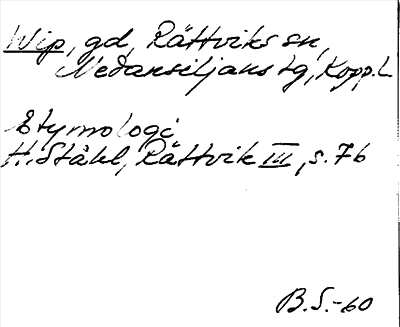 Wip, gd, Rättviks sn,
Nedansiljans tg, Kopp.L
Etymologi
H. Ståhl, Rättvik III, s. 76
B.S.-60